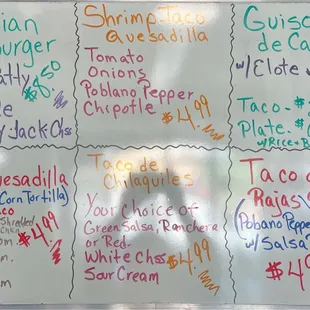 ian
urger
atty
$8.50
le
Jack Chss
Shrimp Taco
Quesadilla
Tomato
Onions
Poblano Pepper
Chipotle
$4.99
Guiso
de Ca
w/Elote
Taco. $
Plate. $
w/Rice+B
uesadilla
Corn Tortilla)
aco
Shredded
$4.99
om.
m.
om.
Taco de
Chilaquiles
Your Choice of
Green Salsa, Ranchera
or Red.
White Chss
Sour Cream
$4.99
Taco
Rajas
(Pobano Peppe
w/Salsa
$4